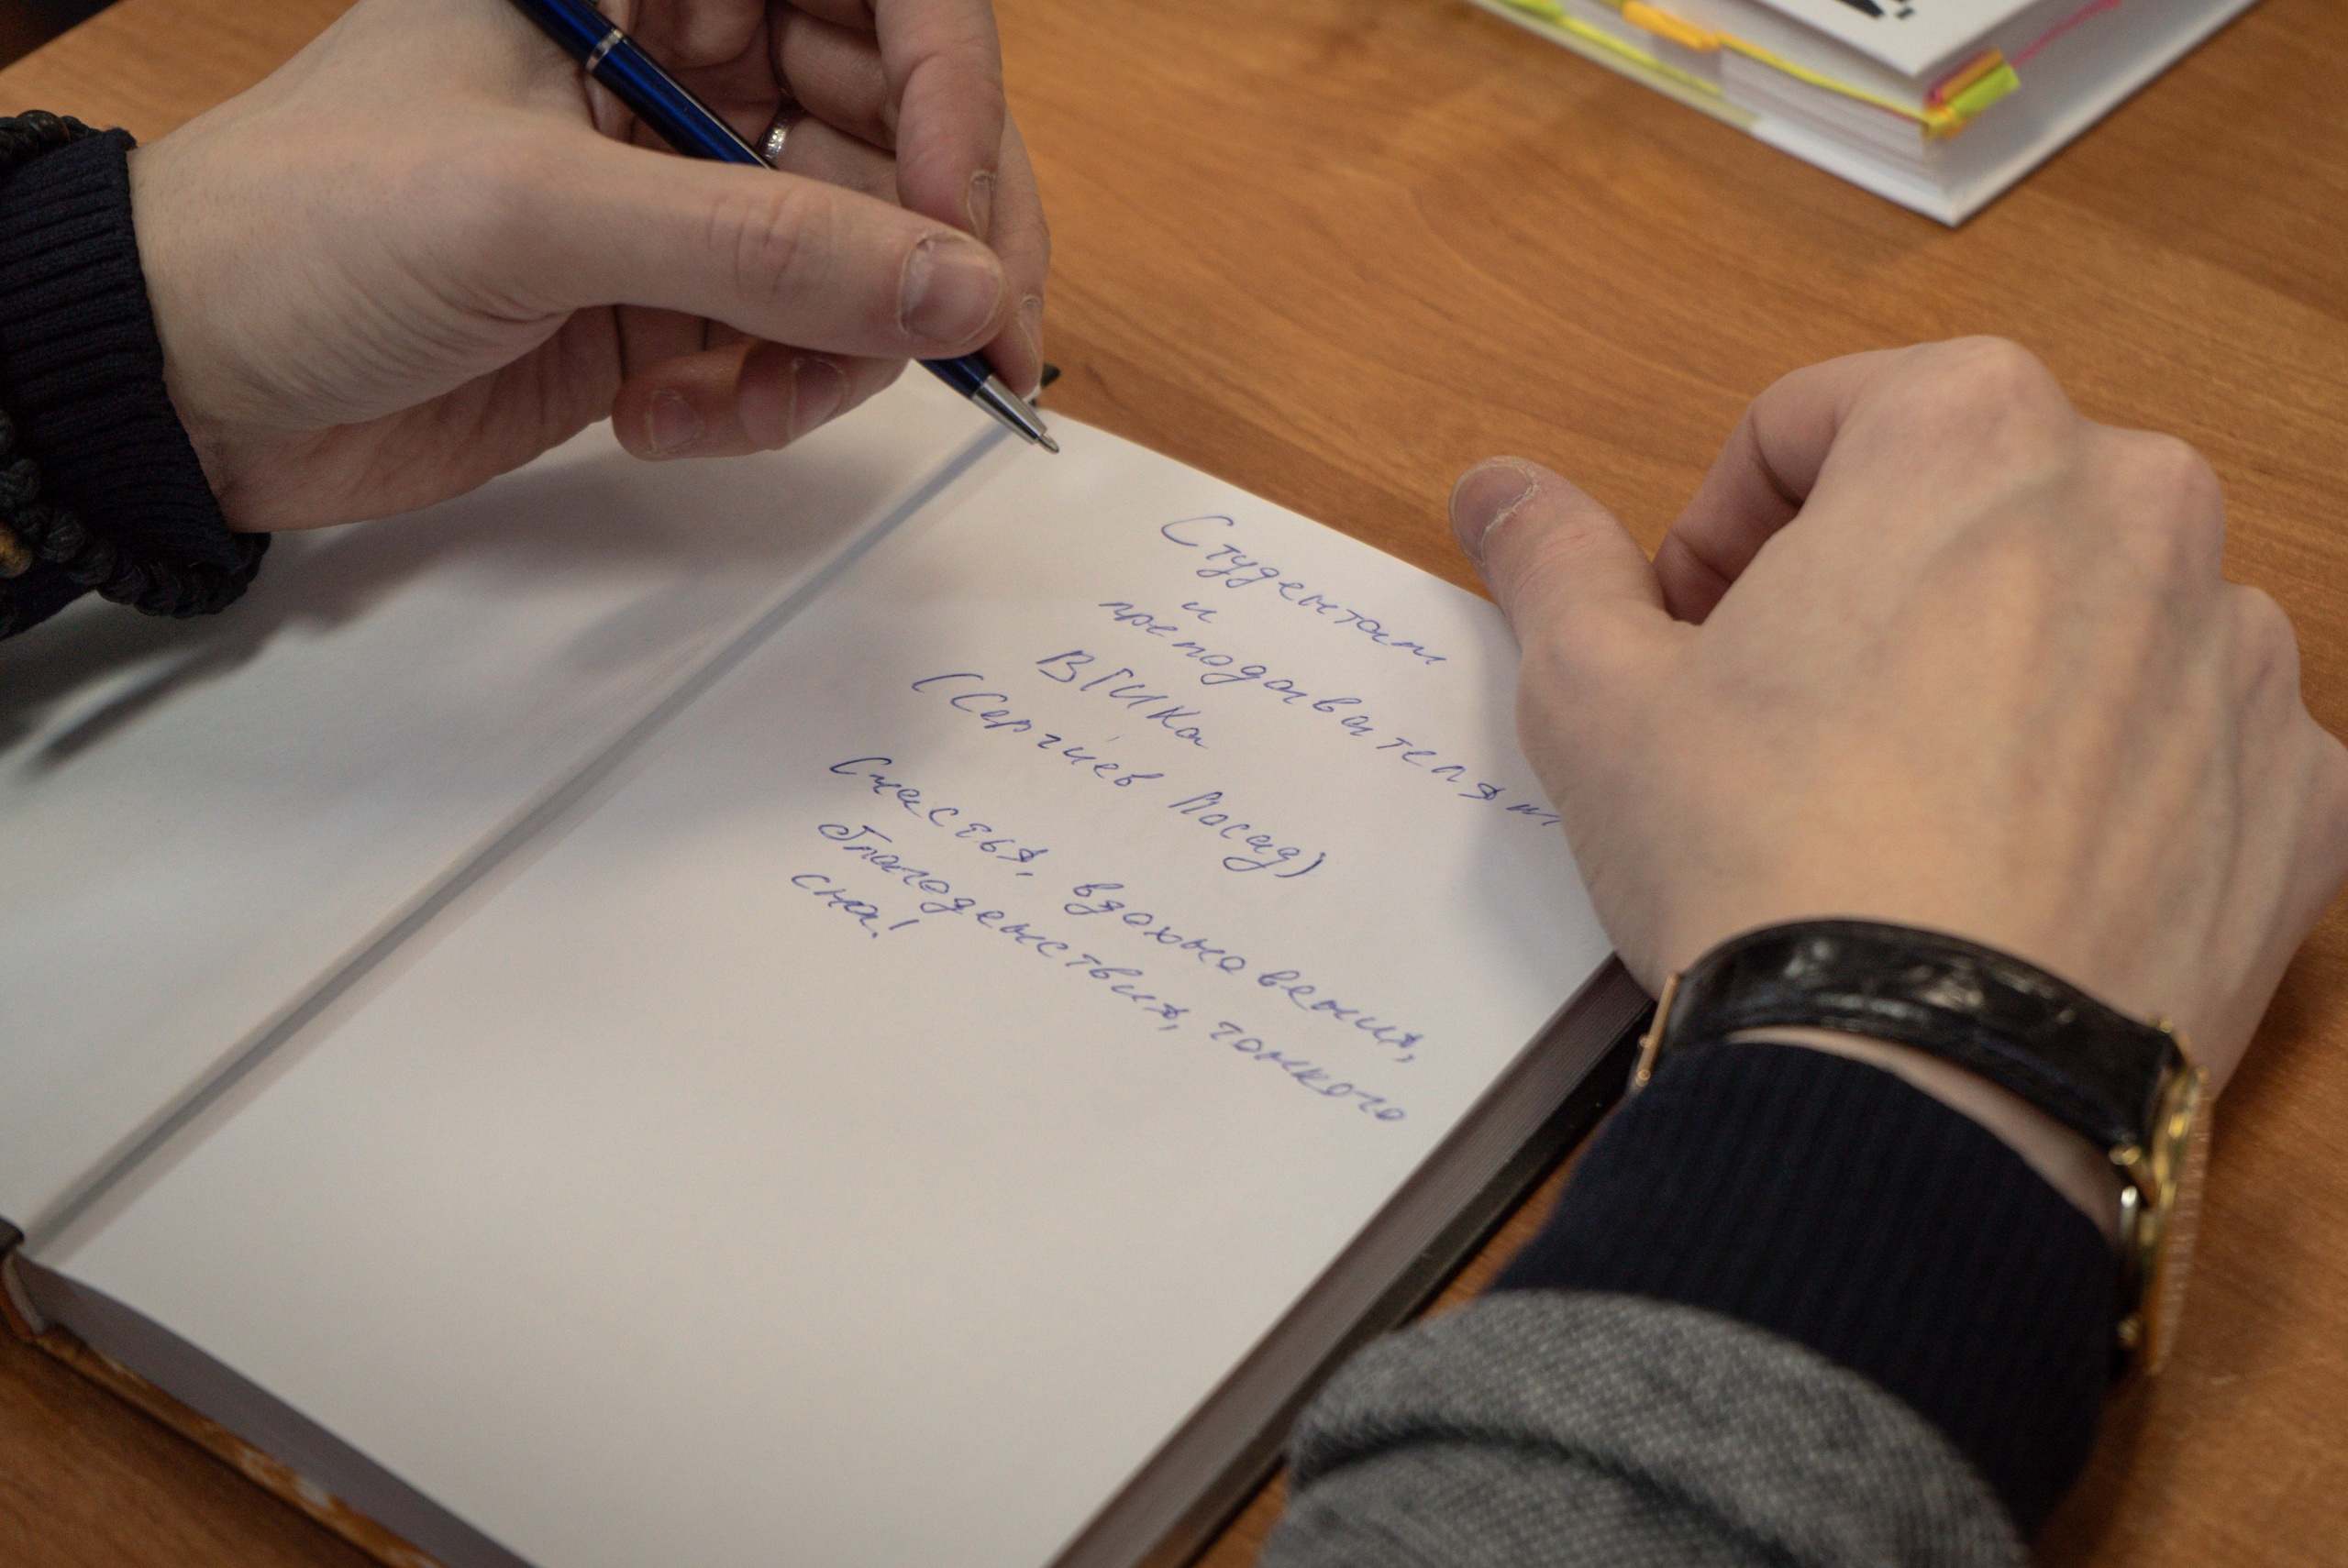 Студентам
и
преподавателям
ВГИКа
(Сергиев Посад)
Счастья, вдохновения,
благоденствия, громкого
сна!